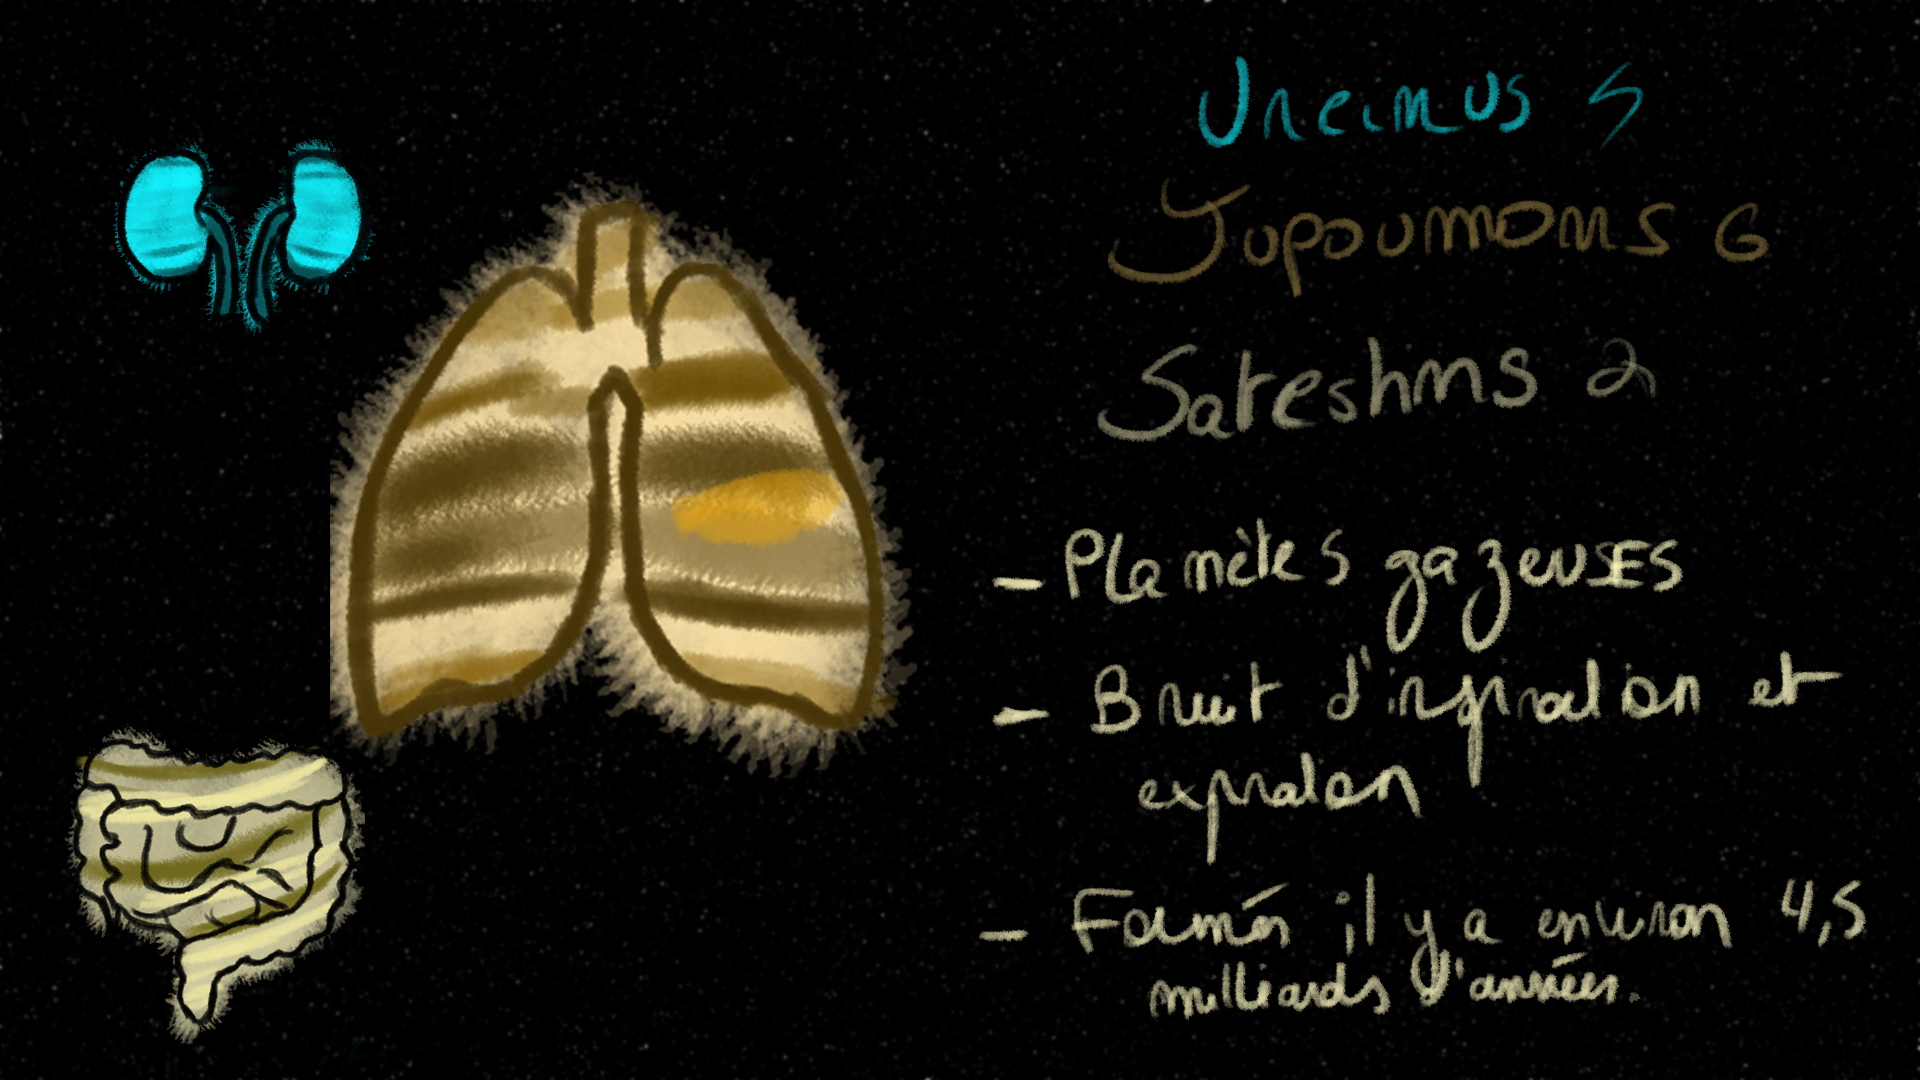 Ureinus 5
Jupoumons 6
Sateshins 2
- Planètes gazeuses
- Bruit d'inspiration et
expiration
- Formés il y a environ 4,5
milliards d'années.